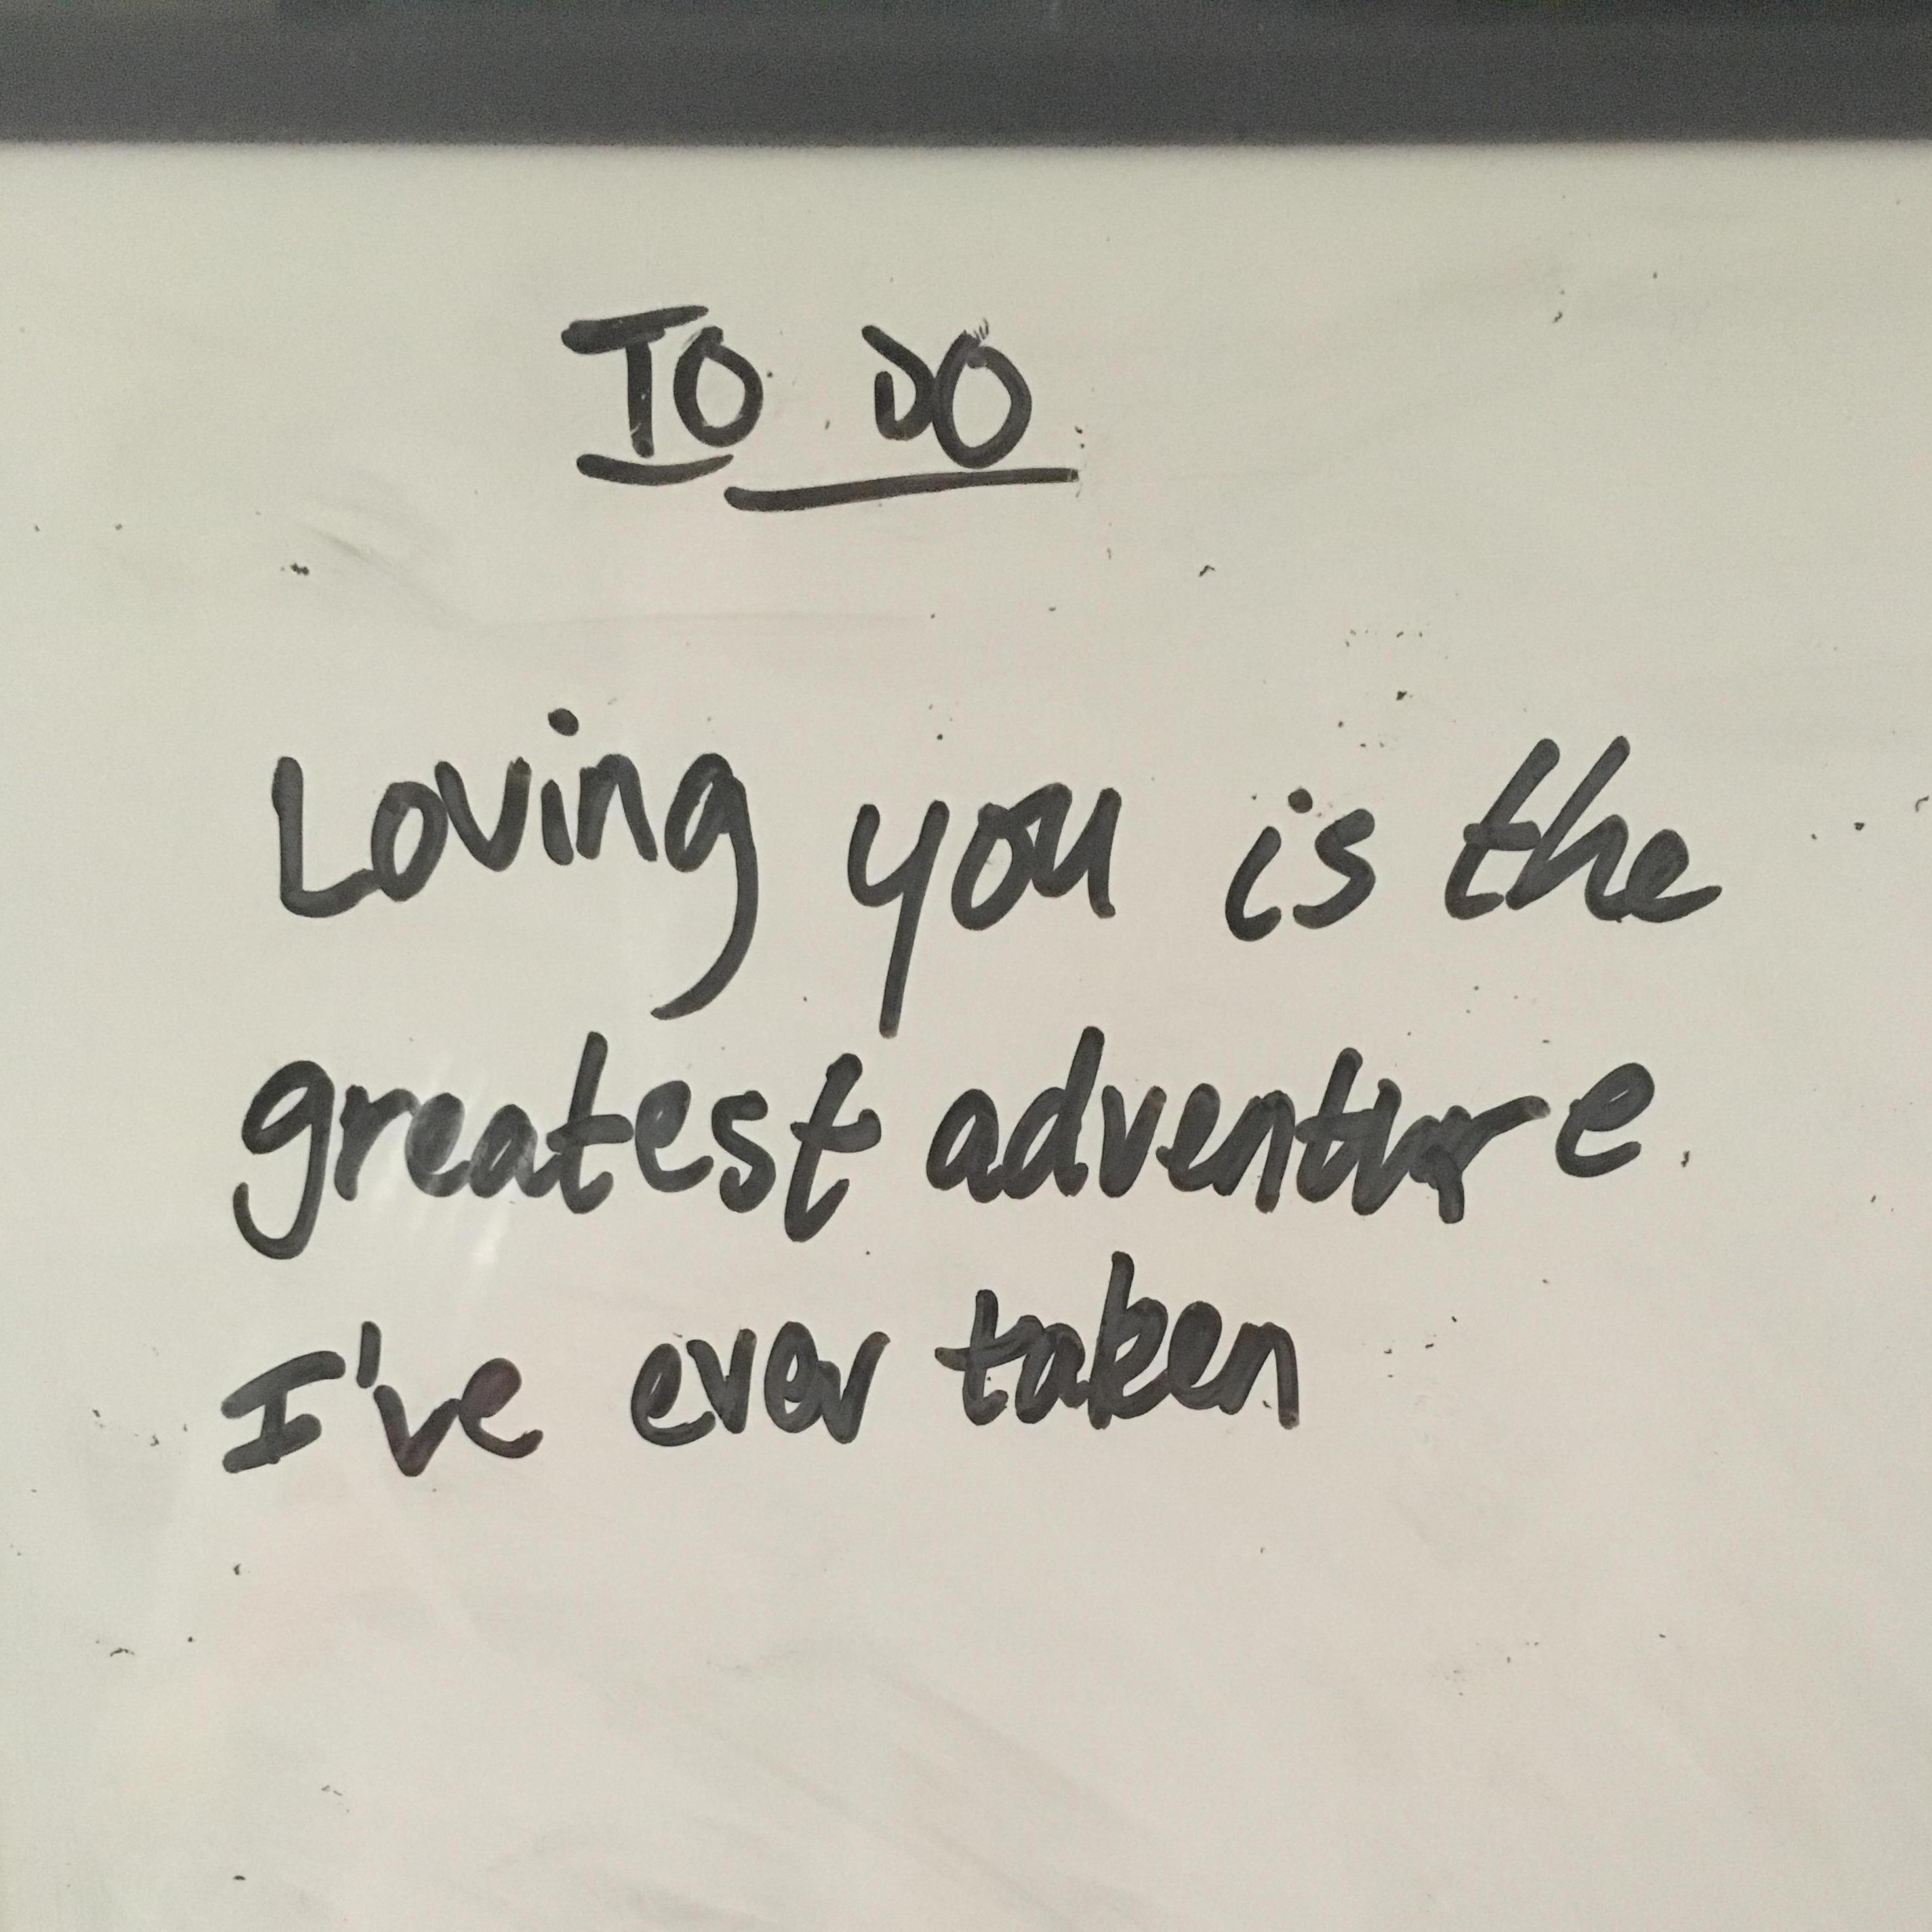 TO DO
Loving you is the
greatest adventure
I've ever taken